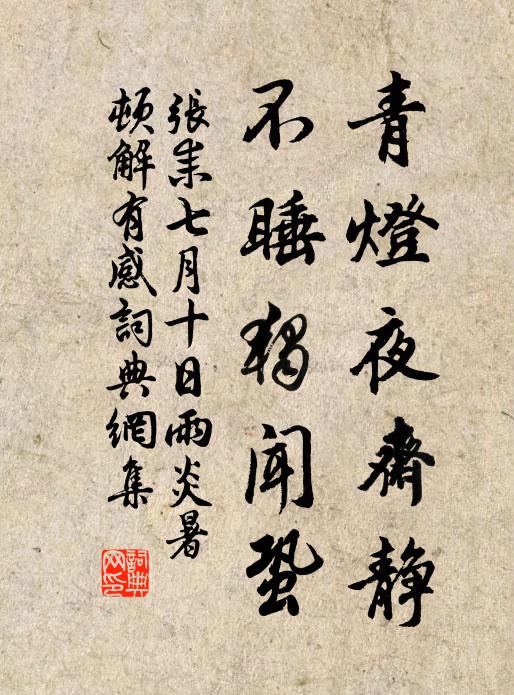 青燈夜齋靜
不睡獨聞蛩
張耒七月十日雨炎暑
頓解有感詞典網集
詞典網印